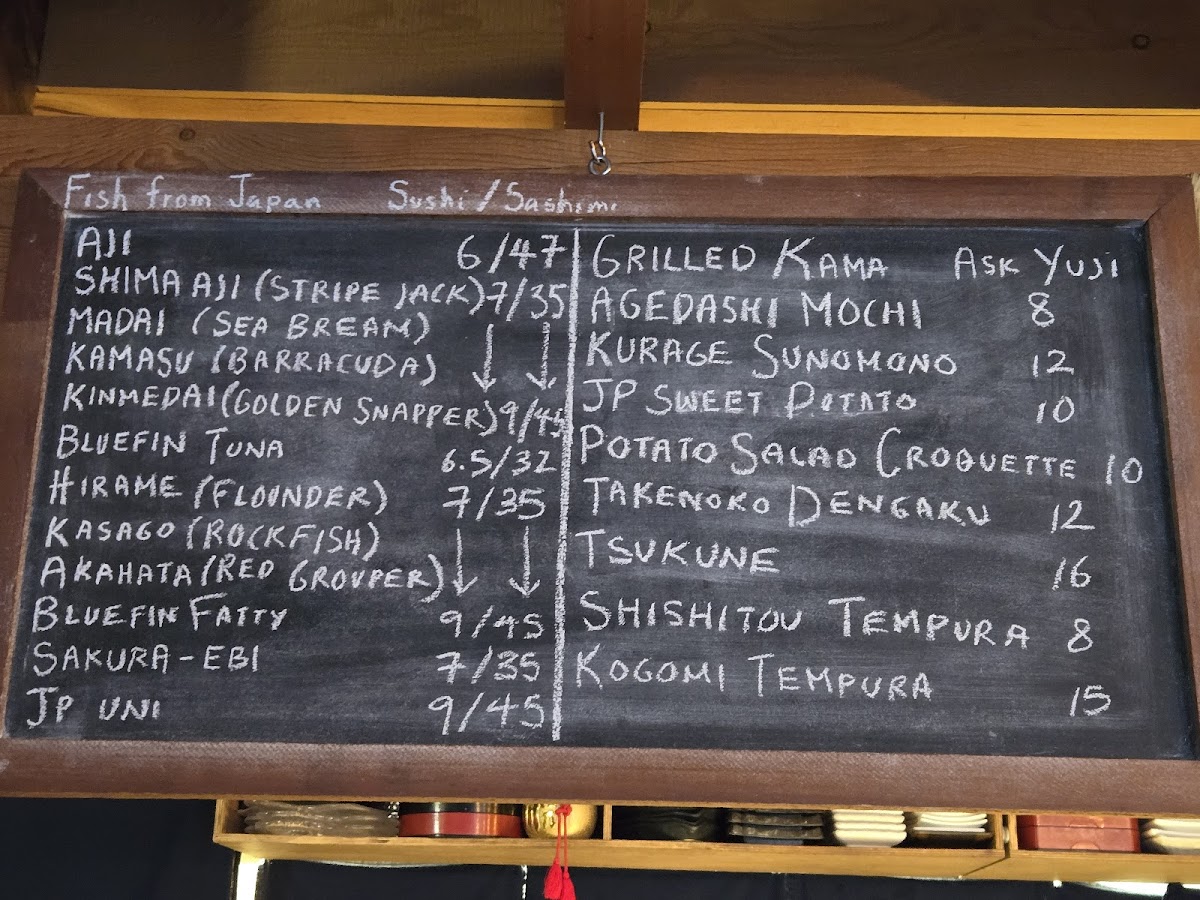 Fish from Japan Sushi/Sashimi
AJI 6/47
SHIMA AJI (STRIPE JACK) 7/35
MADAI (SEA BREAM) ↓ ↓
KAMASU (BARRACUDA)
KINMEDAI (GOLDEN SNAPPER) 9/45
BLUEFIN TUNA 6.5/32
HIRAME (FLOUNDER) 7/35
KASAGO (ROCKFISH) ↓ ↓
AKAHATA (RED GROUPER)
BLUEFIN FATTY 9/45
SAKURA-EBI 7/35
JP UNI 9/45
GRILLED KAMA ASK YUJI
AGEDASHI MOCHI 8
KURAGE SUNOMONO 12
JP SWEET POTATO 10
POTATO SALAD CROQUETTE 10
TAKENOKO DENGAKU 12
TSUKUNE 16
SHISHITOU TEMPURA 8
KOGOMI TEMPURA 15